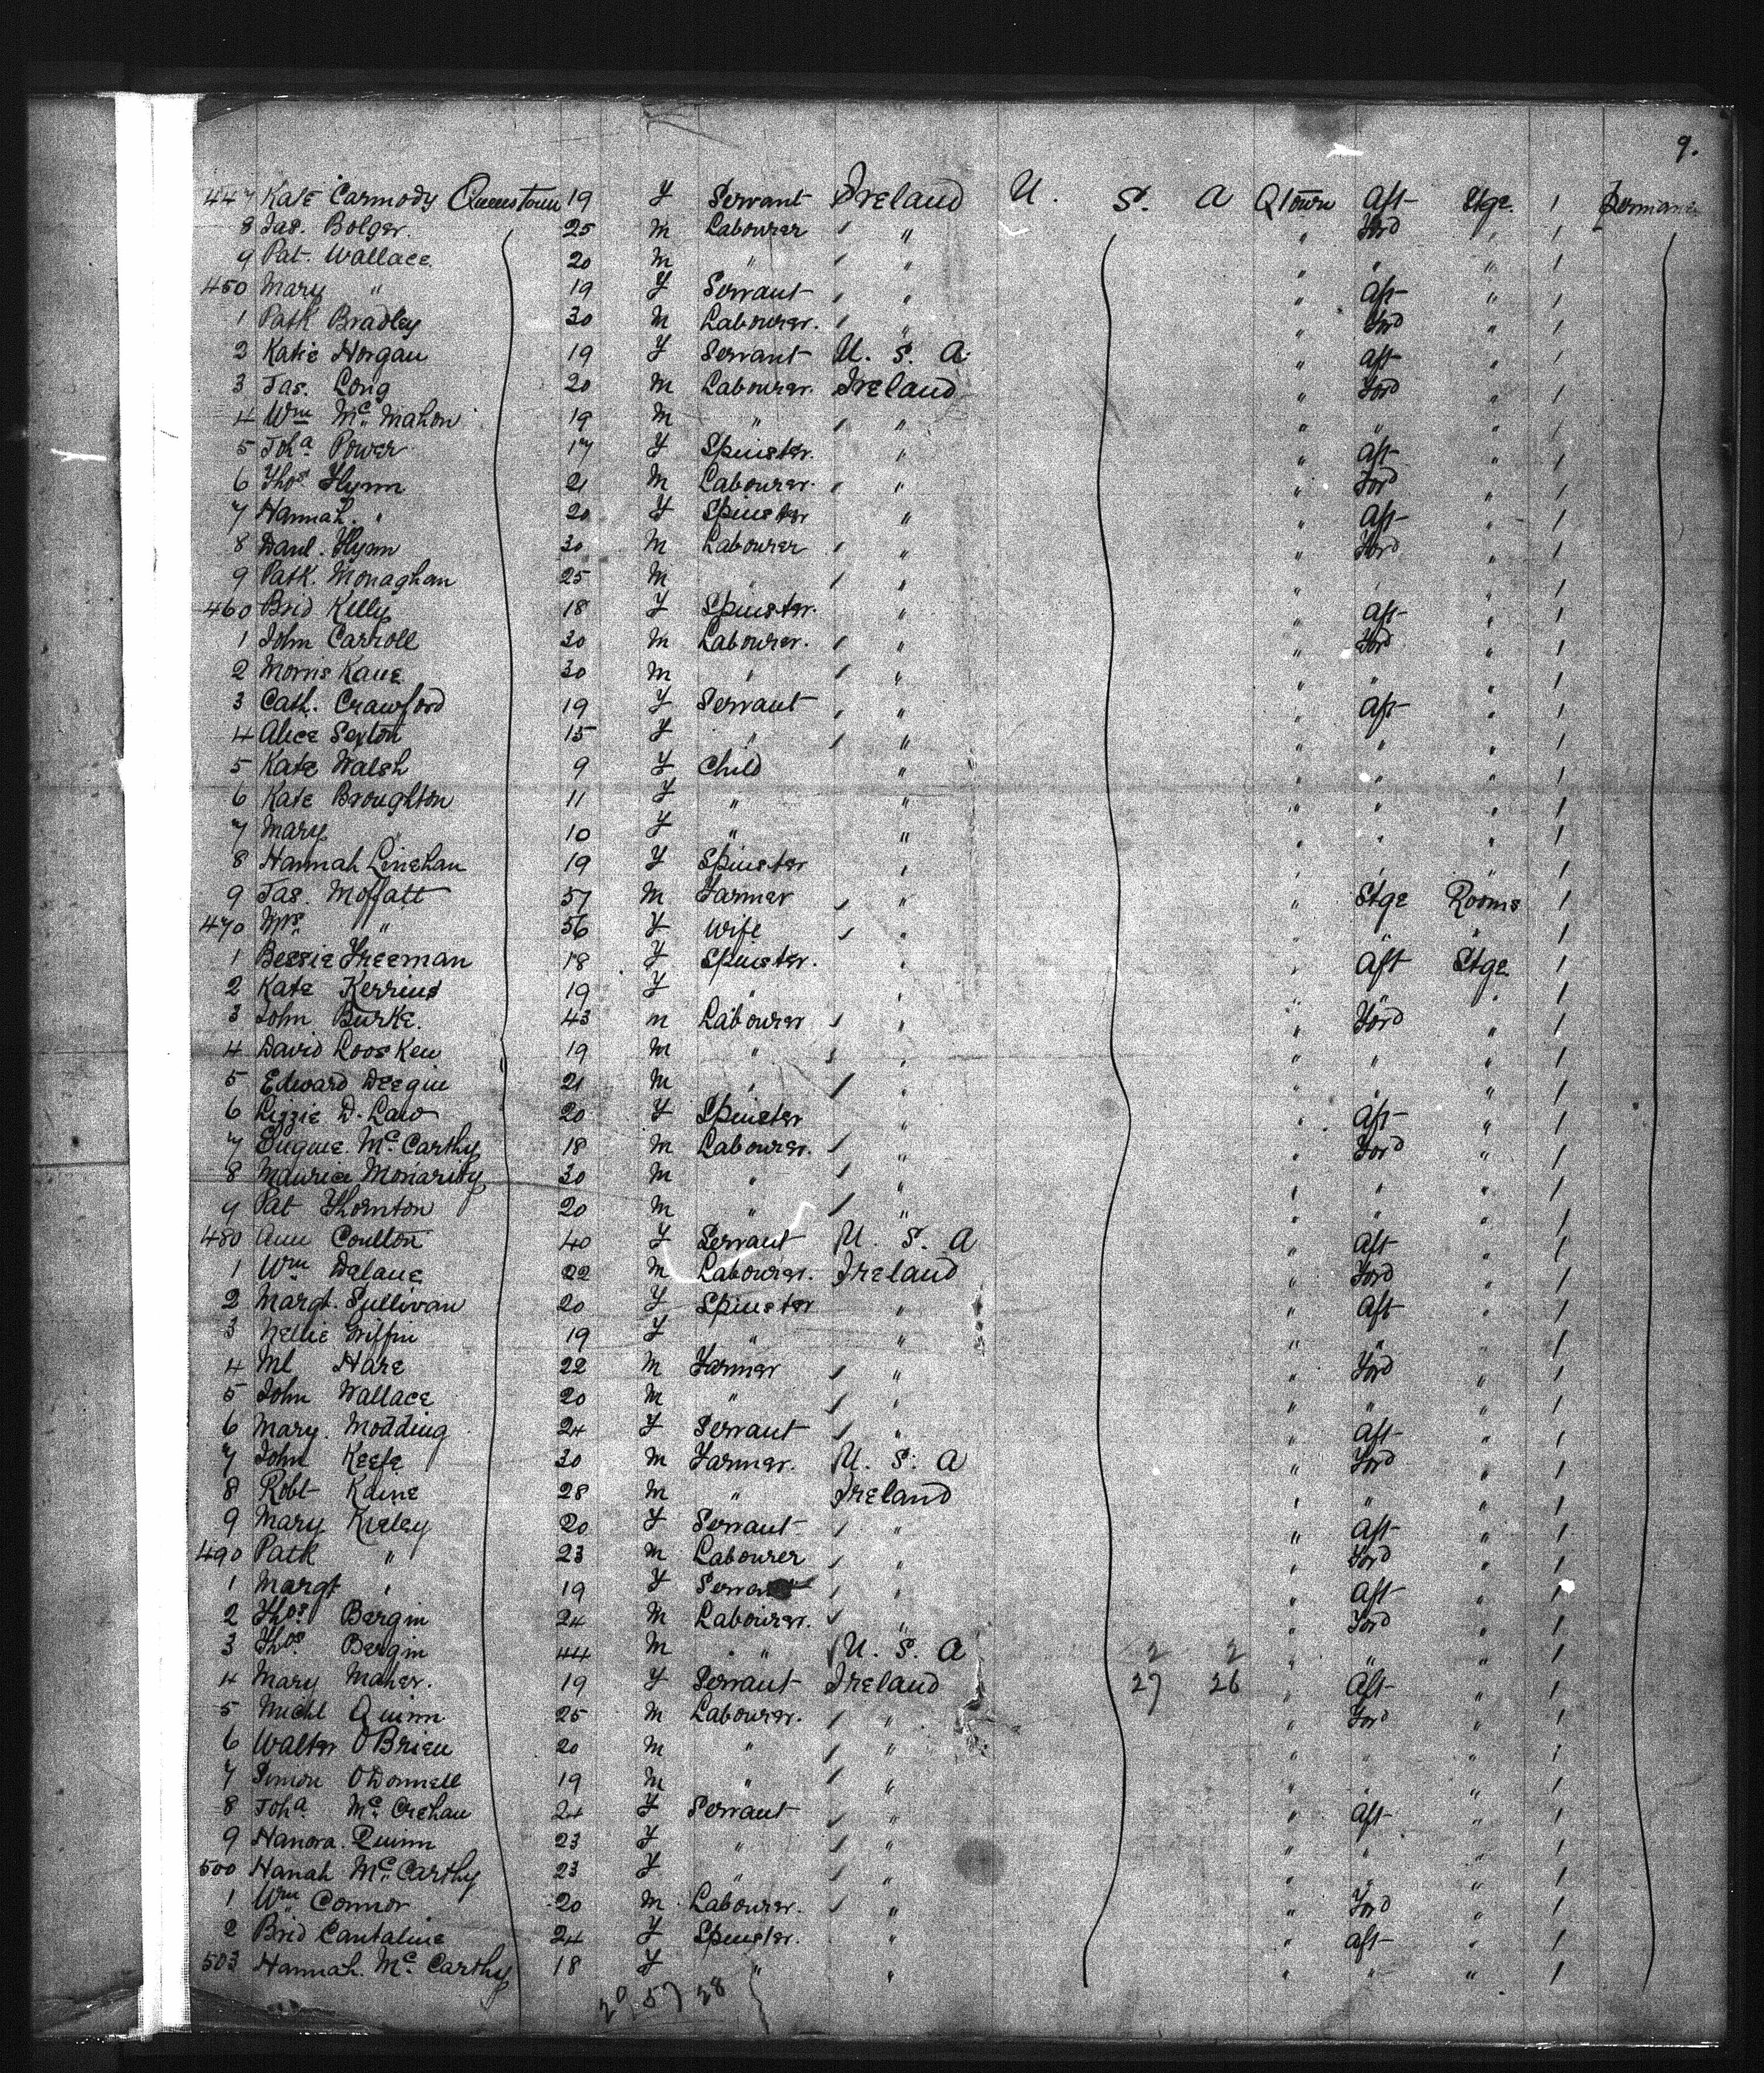 9.
447 Kate Carmody Queenstown 19 F Servant Ireland U. S. A Qtown Aft Stge. 1
8 Jas. Bolger. 25 M Labourer " " Ford " 1
9 Pat. Wallace. 20 M " " " " " 1
450 Mary " 19 F Servant " " Aft " 1
1 Patk Bradley 30 M Labourer. " " Ford " 1
2 Katie Horgan 19 F Servant U. S. A " Aft " 1
3 Jas. Long 20 M Labourer. Ireland " Ford " 1
4 Wm McMahon 19 M " " " " " 1
5 Joha Power 17 F Spinster. " " Aft " 1
6 Thos Flynn 21 M Labourer. " " Ford " 1
7 Hannah " 20 F Spinster " " Aft " 1
8 Danl. Flynn 30 M Labourer " " Ford " 1
9 Patk. Monaghan 25 M " " " " " 1
460 Brid Kelly 18 F Spinster. " " Aft " 1
1 John Carroll 30 M Labourer. " " Ford " 1
2 Morris Kane 30 M " " " " " 1
3 Cath. Crawford 19 F Servant " " Aft " 1
4 Alice Sexton 15 F " " " " " 1
5 Kate Walsh 9 F Child " " " " 1
6 Kate Broughton 11 F " " " " " 1
7 Mary " 10 F " " " " " 1
8 Hannah Linehan 19 F Spinster " " " " 1
9 Jas. Moffatt 57 M Farmer " " Stge Rooms 1
470 Mrs " 56 F Wife " " " " 1
1 Bessie Freeman 18 F Spinster. " " Aft Stge 1
2 Kate Kerrins 19 F " " " " " 1
3 John Burke. 43 M Labourer " " Ford " 1
4 David Loosken 19 M " " " " " 1
5 Edward Deegin 21 M " " " " " 1
6 Lizzie D. Law 20 F Spinster " " Aft " 1
7 Eugine McCarthy 18 M Labourer. " " Ford " 1
8 Maurice Moriarity 30 M " " " " " 1
9 Pat Thornton 20 M " " " " " 1
480 Ann Coulton 40 F Servant U. S. A " Aft " 1
1 Wm Dalane 22 M Labourer. Ireland " Ford " 1
2 Margt. Sullivan 20 F Spinster " " Aft " 1
3 Nellie Griffin 19 F " " " " " 1
4 Ml Hare 22 M Farmer " " Ford " 1
5 John Wallace 20 M " " " " " 1
6 Mary. Modding 24 F Servant " " Aft " 1
7 John Keefe 30 M Farmer. U. S. A " Ford " 1
8 Robt Kaine 28 M " Ireland " " " 1
9 Mary Kieley 20 F Servant " " Aft " 1
490 Patk " 23 M Labourer " " Ford " 1
1 Margt " 19 F Servant " " Aft " 1
2 Thos Bergin 24 M Labourer. " " Ford " 1
3 Thos. Bergin 44 M " U. S. A 2 2 " " " 1
4 Mary Maher. 19 F Servant Ireland 27 26 " Aft " 1
5 Michl Quinn 25 M Labourer. " " Ford " 1
6 Walter OBrien 20 M " " " " " 1
7 Simon ODonnell 19 M " " " " " 1
8 Joha McCrehan 24 F Servant " " Aft " 1
9 Hanora. Quinn 23 F " " " " " 1
500 Hanah McCarthy 23 F " " " " " 1
1 Wm Connor 20 M Labourer. " " Ford " 1
2 Brid Cantaline 24 F Spinster. " " Aft " 1
503 Hannah. McCarthy 18 F " " " " " 1
20 57 28